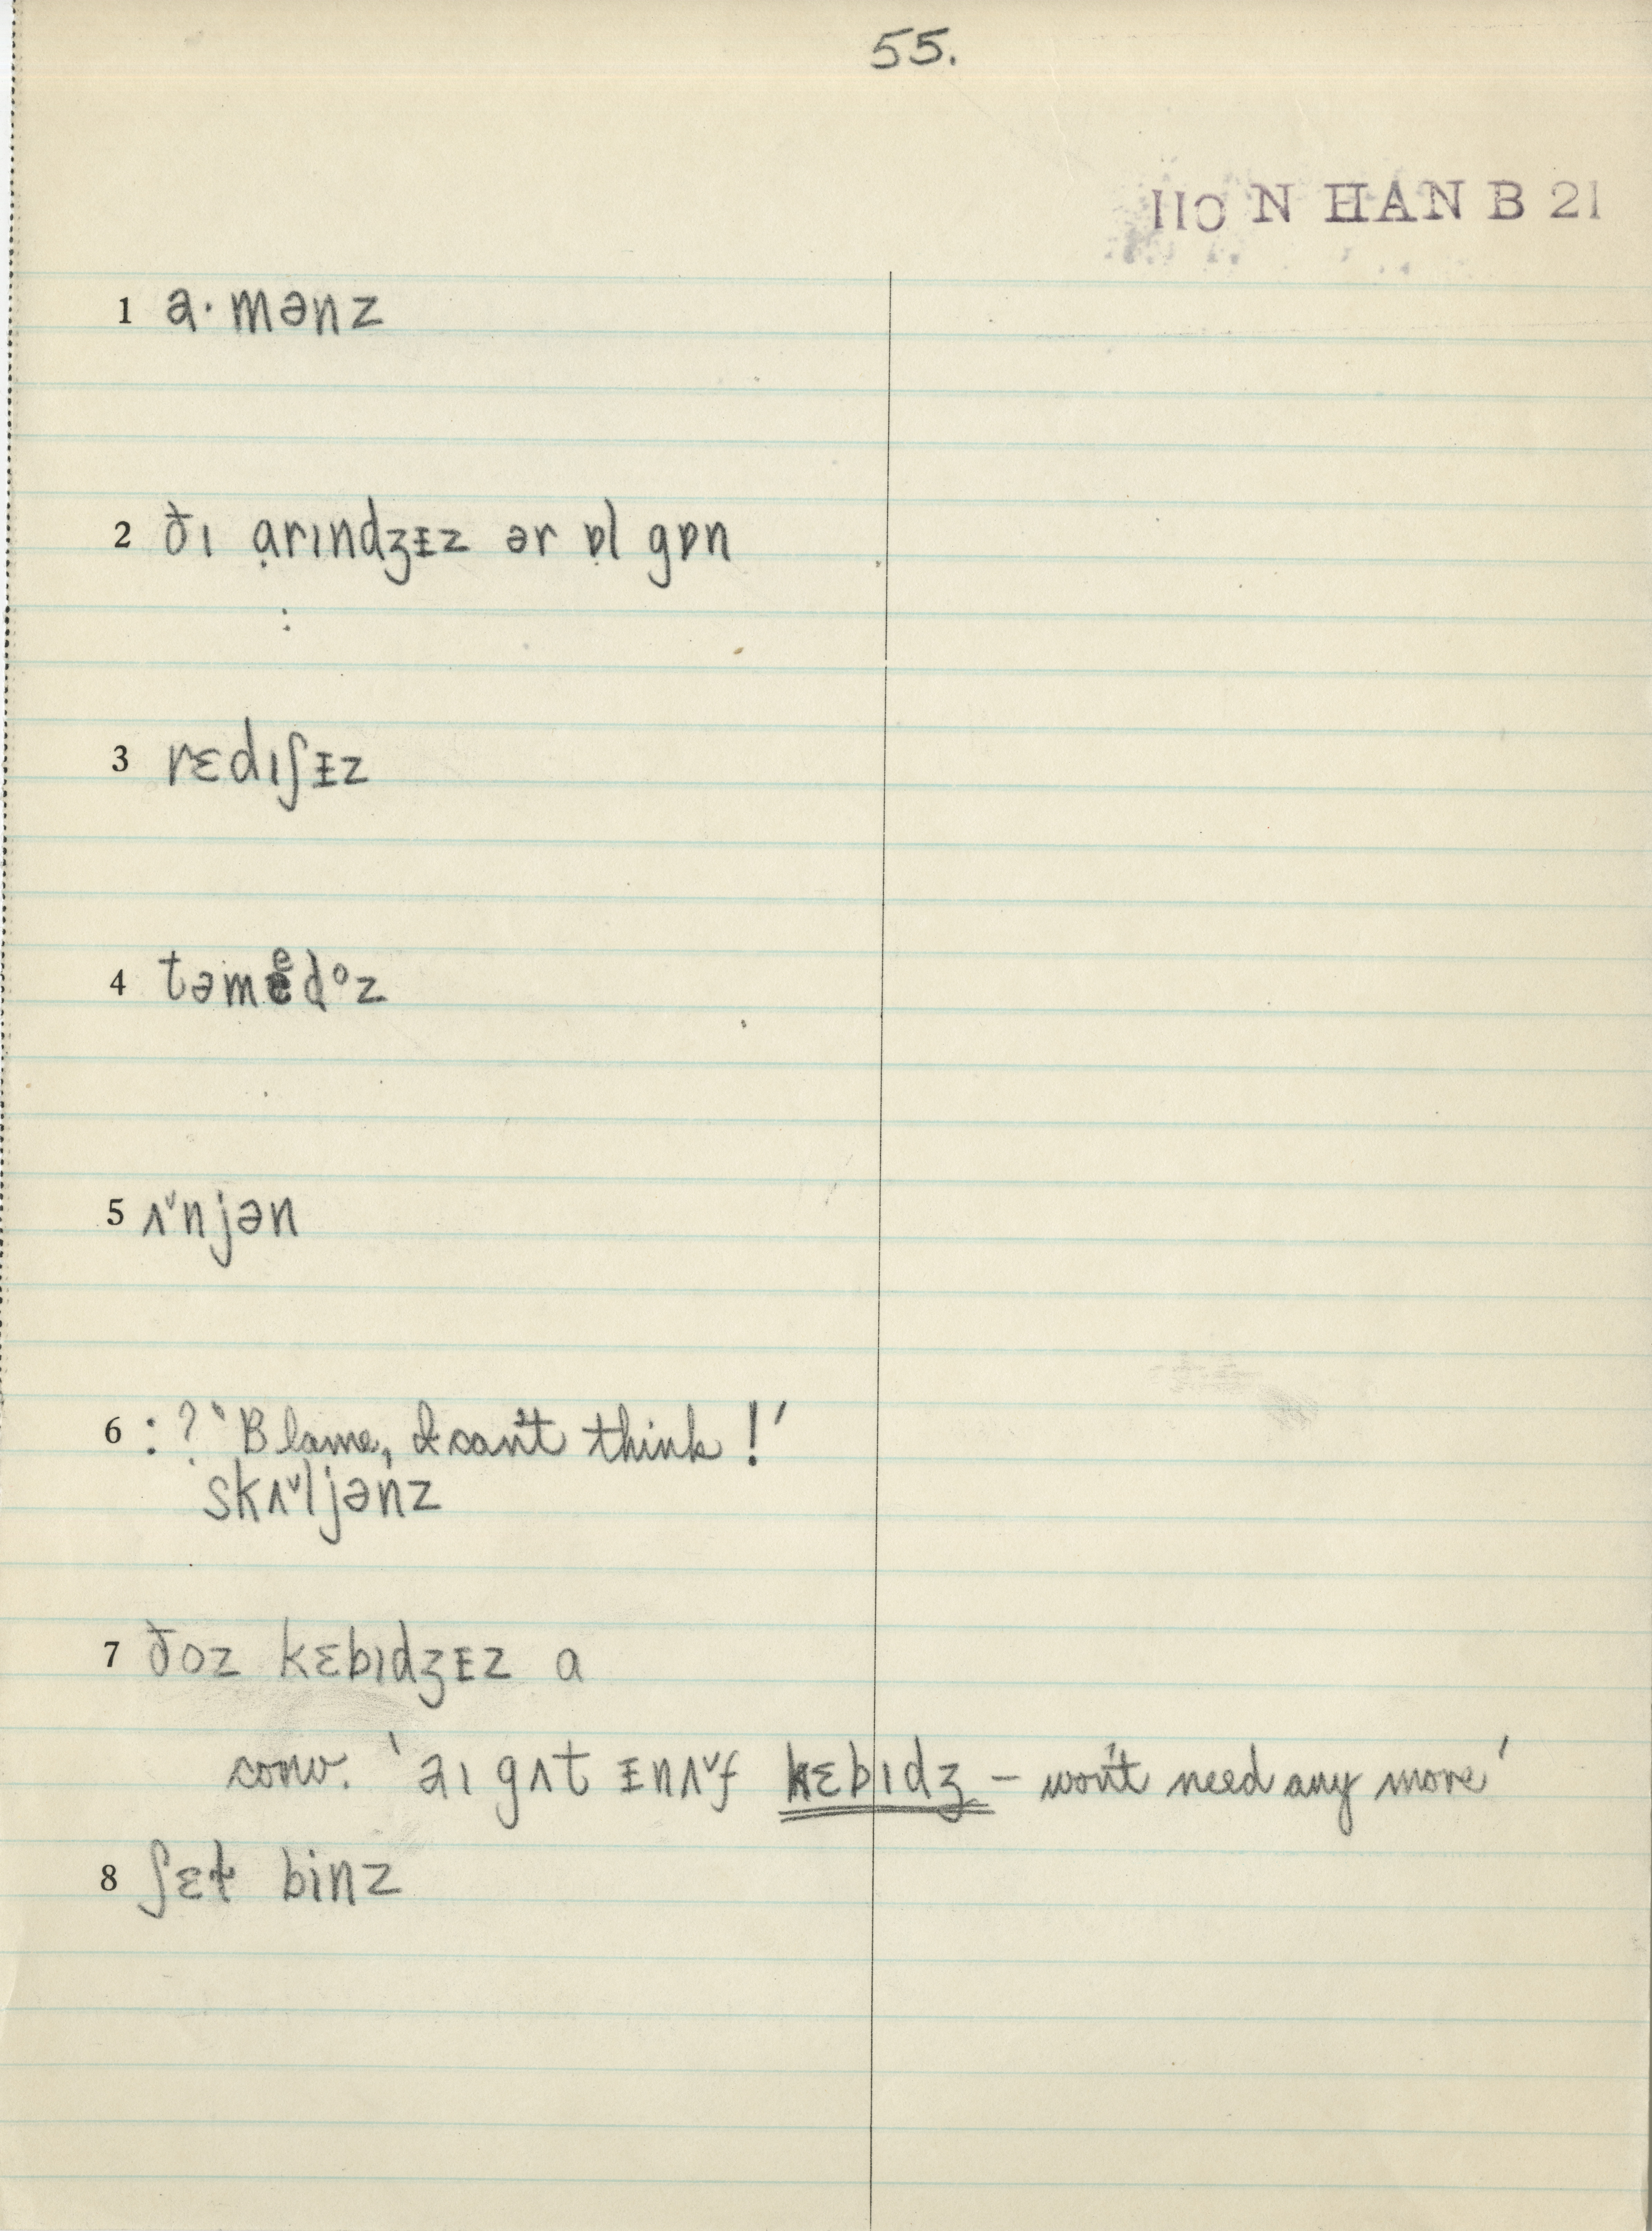 55.
110 N HAN B 21
1 a·mənz
2 ðɪ ạrɪndʒᵻz ər ɒ̣l gɒn
:
3 rɛdɪʃᵻz
4 təmedᵒz
5 ʌ˅njən
6 : ? 'Blame, I can't think!'
skʌ˅ljənz
7 ðoz kɛbɪdʒᵻz a
conv. 'aɪ gʌt ᵻnʌ˅f kɛbɪdʒ – won't need any more'
8 ʃɛɫ binz